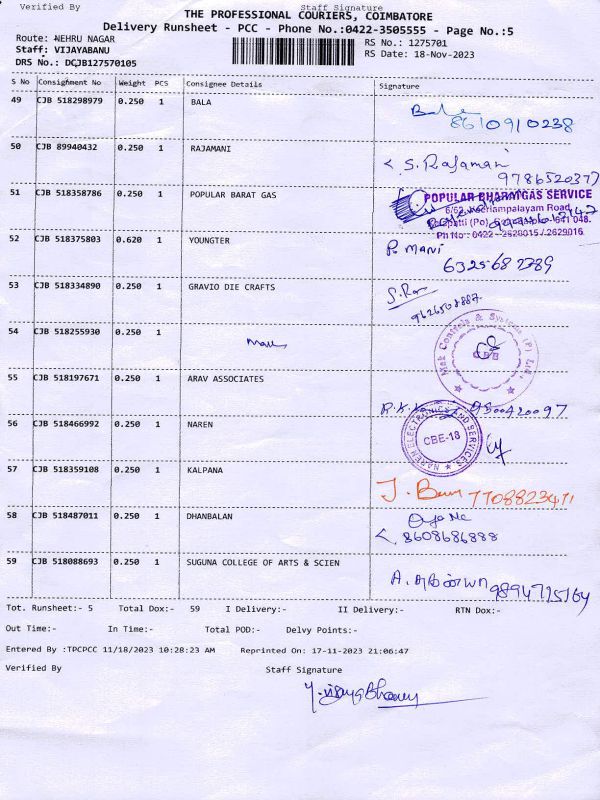 Verified By Staff Signature
THE PROFESSIONAL COURIERS, COIMBATORE
Delivery Runsheet - PCC - Phone No.:0422-3505555 - Page No.:5
Route: NEHRU NAGAR
Staff: VIJAYABANU
DRS No.: DCJB127570105
RS No.: 1275701
RS Date: 18-Nov-2023
S No Consignment No Weight PCS Consignee Details Signature
49 CJB 518298979 0.250 1 BALA
8610910238
50 CJB 89940432 0.250 1 RAJAMANI
S. Rajamani
9786520377
51 CJB 518358786 0.250 1 POPULAR BARAT GAS
POPULAR BHARATGAS SERVICE
Ph No : 0422 - 2628015 / 2629016
52 CJB 518375803 0.620 1 YOUNGTER
P. Mani
6325682789
53 CJB 518334890 0.250 1 GRAVIO DIE CRAFTS
54 CJB 518255930 0.250 1
55 CJB 518197671 0.250 1 ARAV ASSOCIATES
56 CJB 518466992 0.250 1 NAREN
NAREN ELECTRONICS AND SERVICES
CBE-18
57 CJB 518359108 0.250 1 KALPANA
7708823411
58 CJB 518487011 0.250 1 DHANBALAN
8608686888
59 CJB 518088693 0.250 1 SUGUNA COLLEGE OF ARTS & SCIEN
9894715164
Tot. Runsheet:- 5 Total Dox:- 59 I Delivery:- II Delivery:- RTN Dox:-
Out Time:- In Time:- Total POD:- Delvy Points:-
Entered By :TPCPCC 11/18/2023 10:28:23 AM Reprinted On: 17-11-2023 21:06:47
Verified By Staff Signature